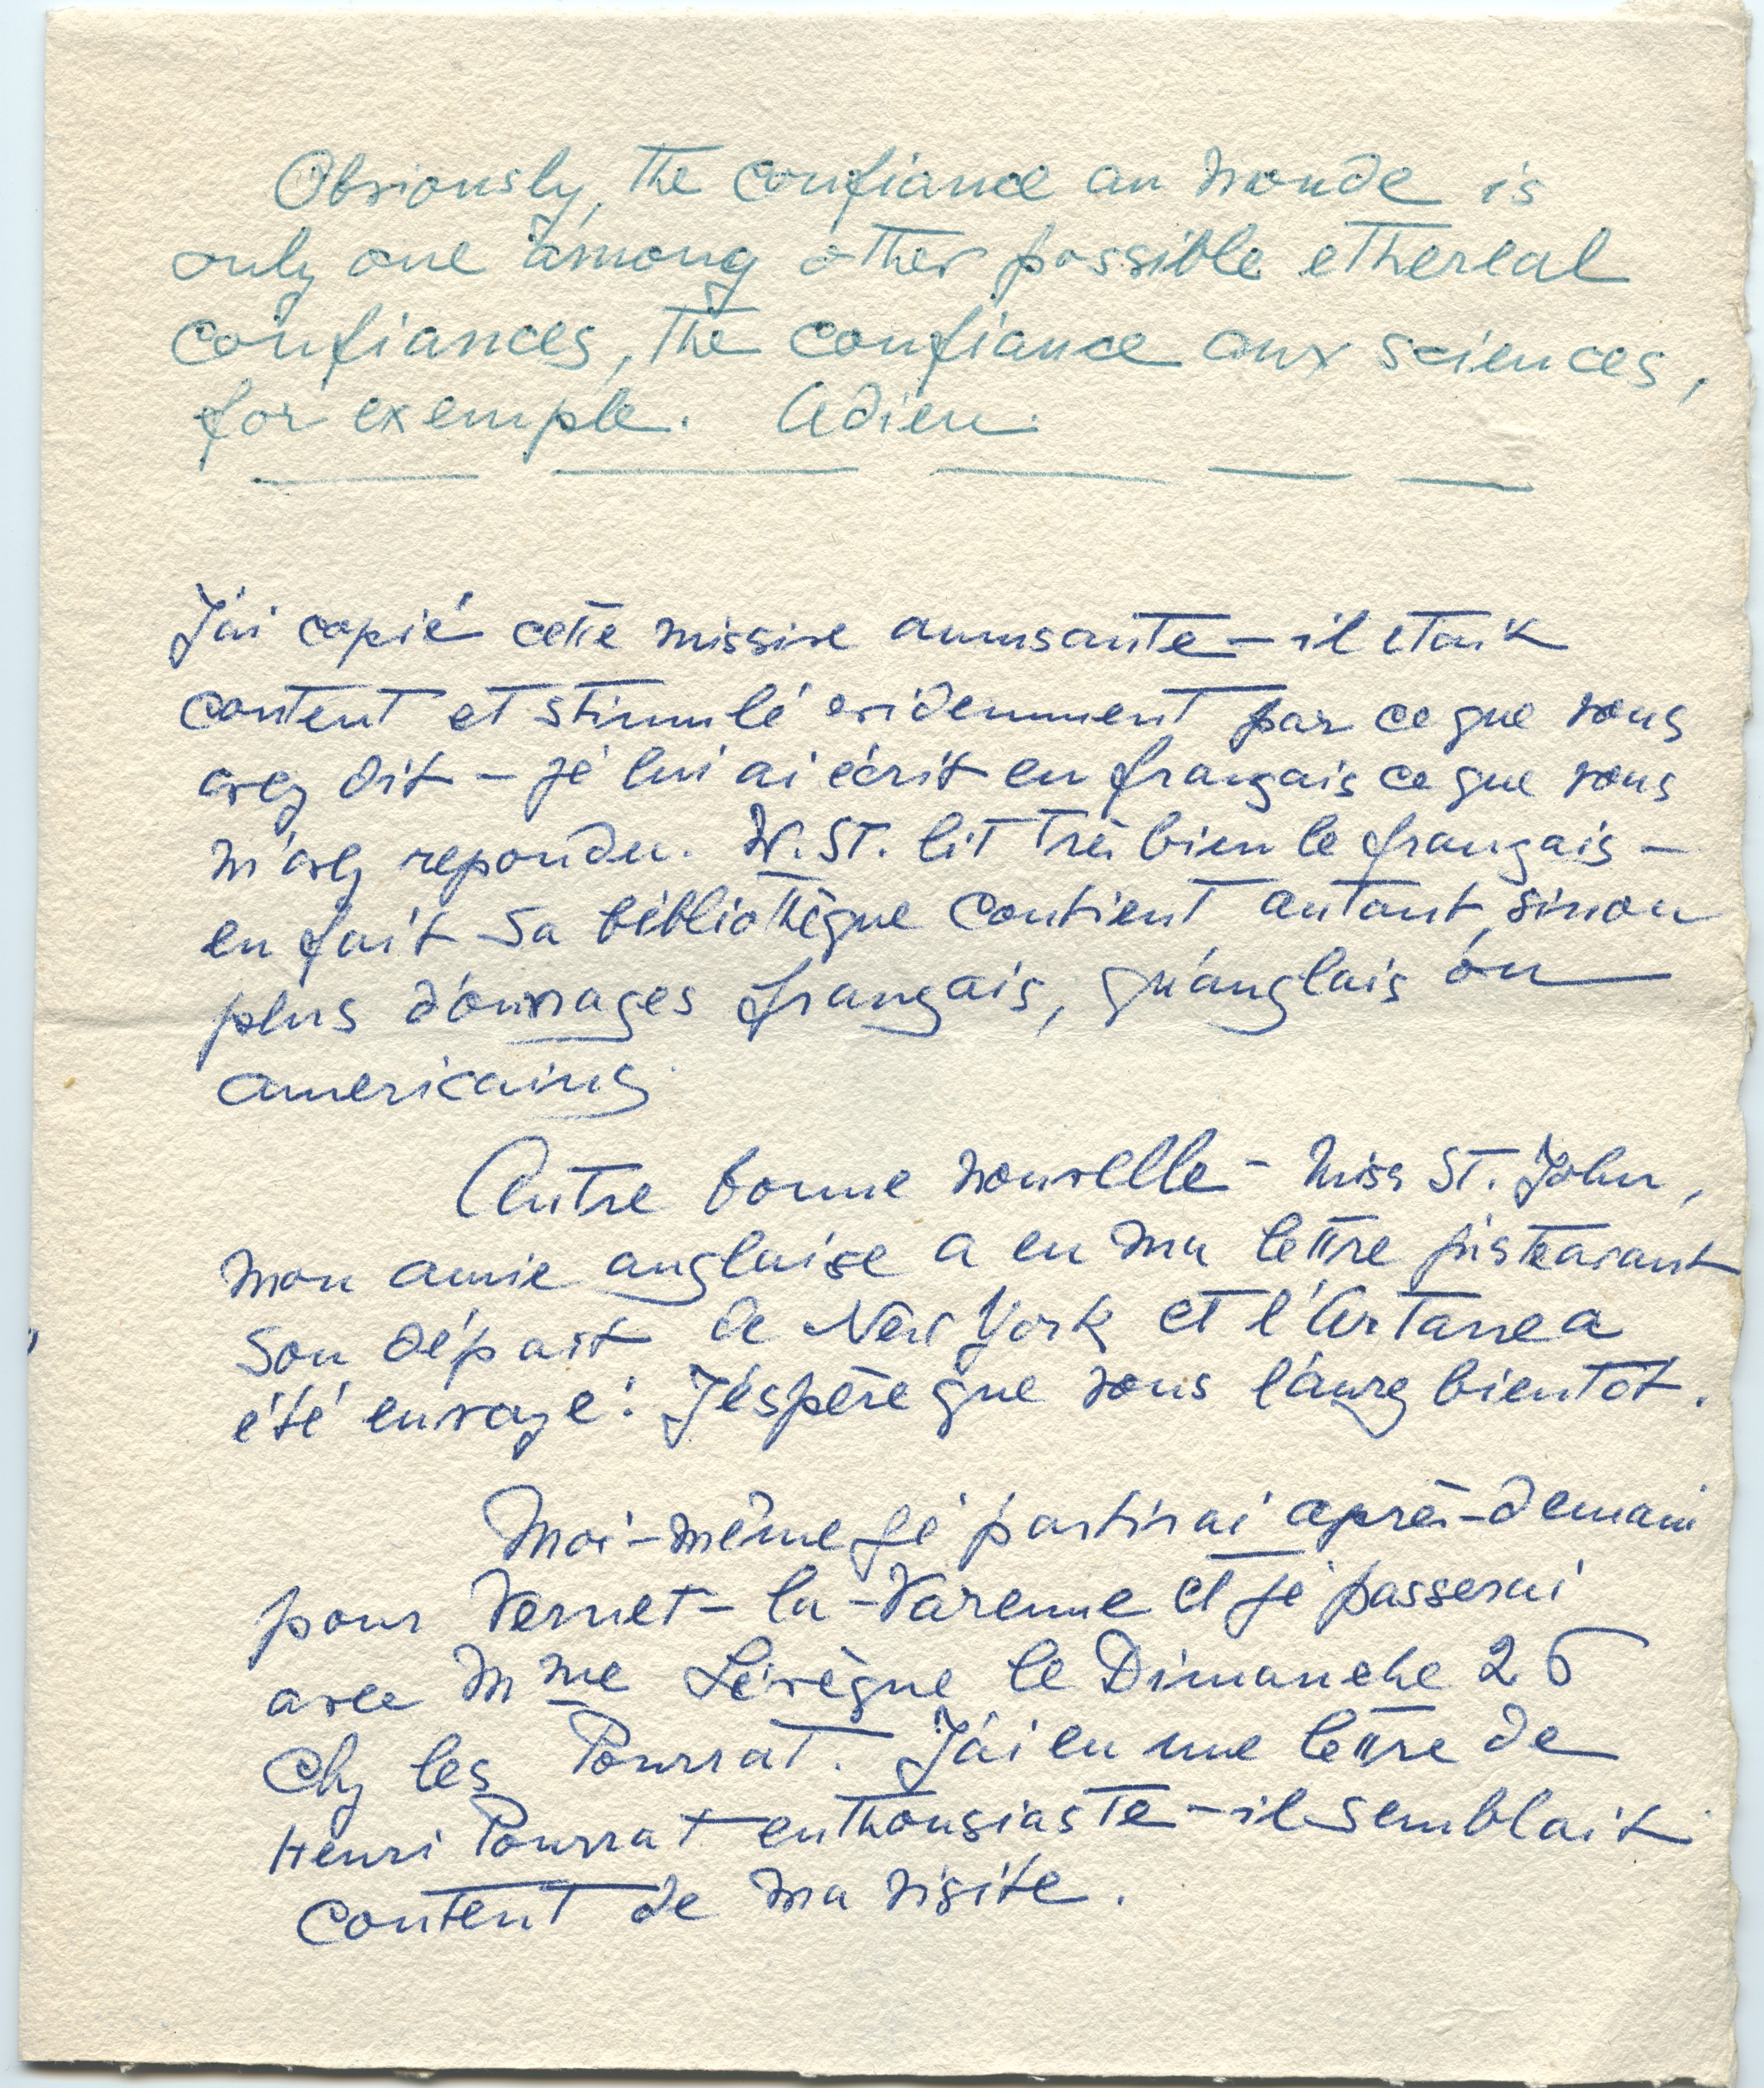 Obviously, the confiance au monde is
only one among other possible ethereal
confiances, the confiance aux sciences,
for exemple. Adieu.
J'ai copié cette missive amusante – il etait
content et stimulé evidemment par ce que vous
avez dit – je lui ai écrit en français ce que vous
m'avez repondu. W. St. lit très bien le français –
en fait sa bibliothèque contient autant, sinon
plus d'ouvrages français, qu'anglais ou
americains.
Autre bonne nouvelle – Miss St. John,
mon amie anglaise a eu ma lettre juste avant
son départ de New York et l'Artane a
été envoyé! J'éspère que vous l'aurez bientot.
Moi-même je partirai après-demain
pour Vernet-la-Varenne et je passerai
avec Mme Lévègue le Dimanche 26
chez les Pourrat. J'ai eu une lettre de
Henri Pourrat enthousiaste – il semblait
content de ma visite.